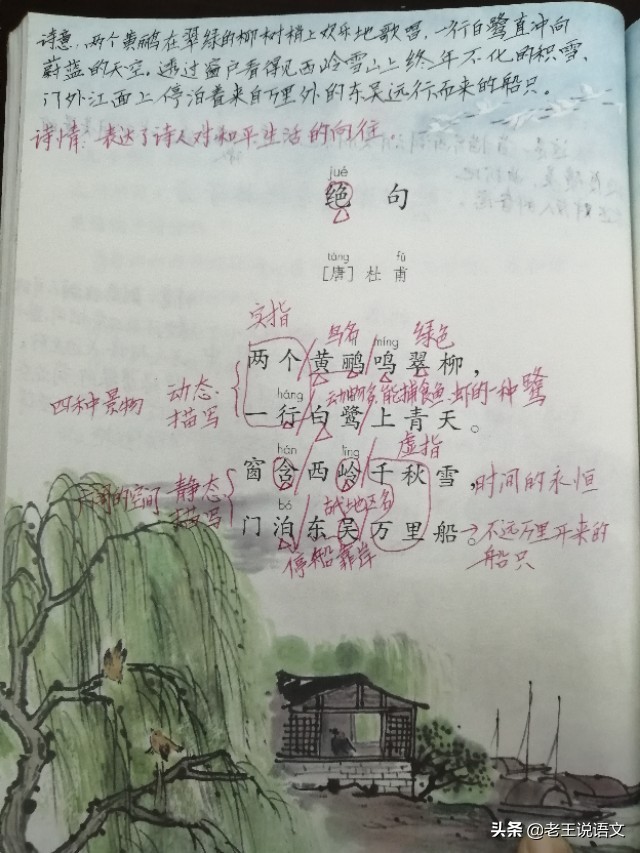 诗意：两个黄鹂在翠绿的柳树梢上欢乐地歌唱，一行白鹭直冲向
蔚蓝的天空。透过窗户看得见西岭雪山上终年不化的积雪，
门外江面上停泊着来自万里外的东吴远行而来的船只。
诗情：表达了诗人对和平生活的向往。
jué
绝 句
táng fǔ
[唐] 杜 甫
实指 鸟名 绿色
míng
两个黄鹂鸣翠柳，
四种景物 动态描写
动物名，能捕食鱼、虾的一种鹭
háng
一行白鹭上青天。
虚指
hán lǐng
窗含西岭千秋雪，
时间的永恒
的空间 静态描写
古地区名
bó
门泊东吴万里船。
停船靠岸
不远万里开来的
船只
头条 @老王说语文